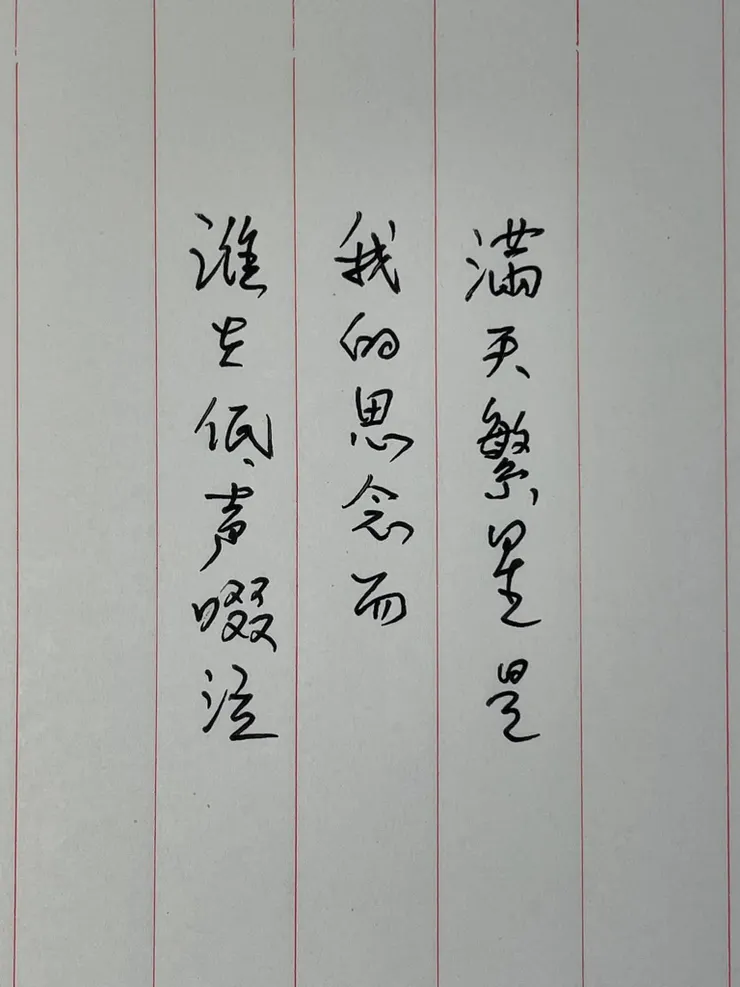 满天繁星是
我的思念而
谁在低声啜泣